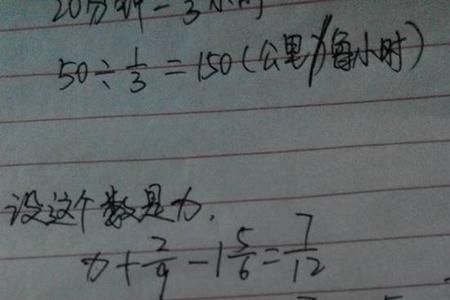 20分钟 = 3小时
50÷1/3=150(公里/每小时)
设这个数是x.
x+2/9-1 5/6=7/12